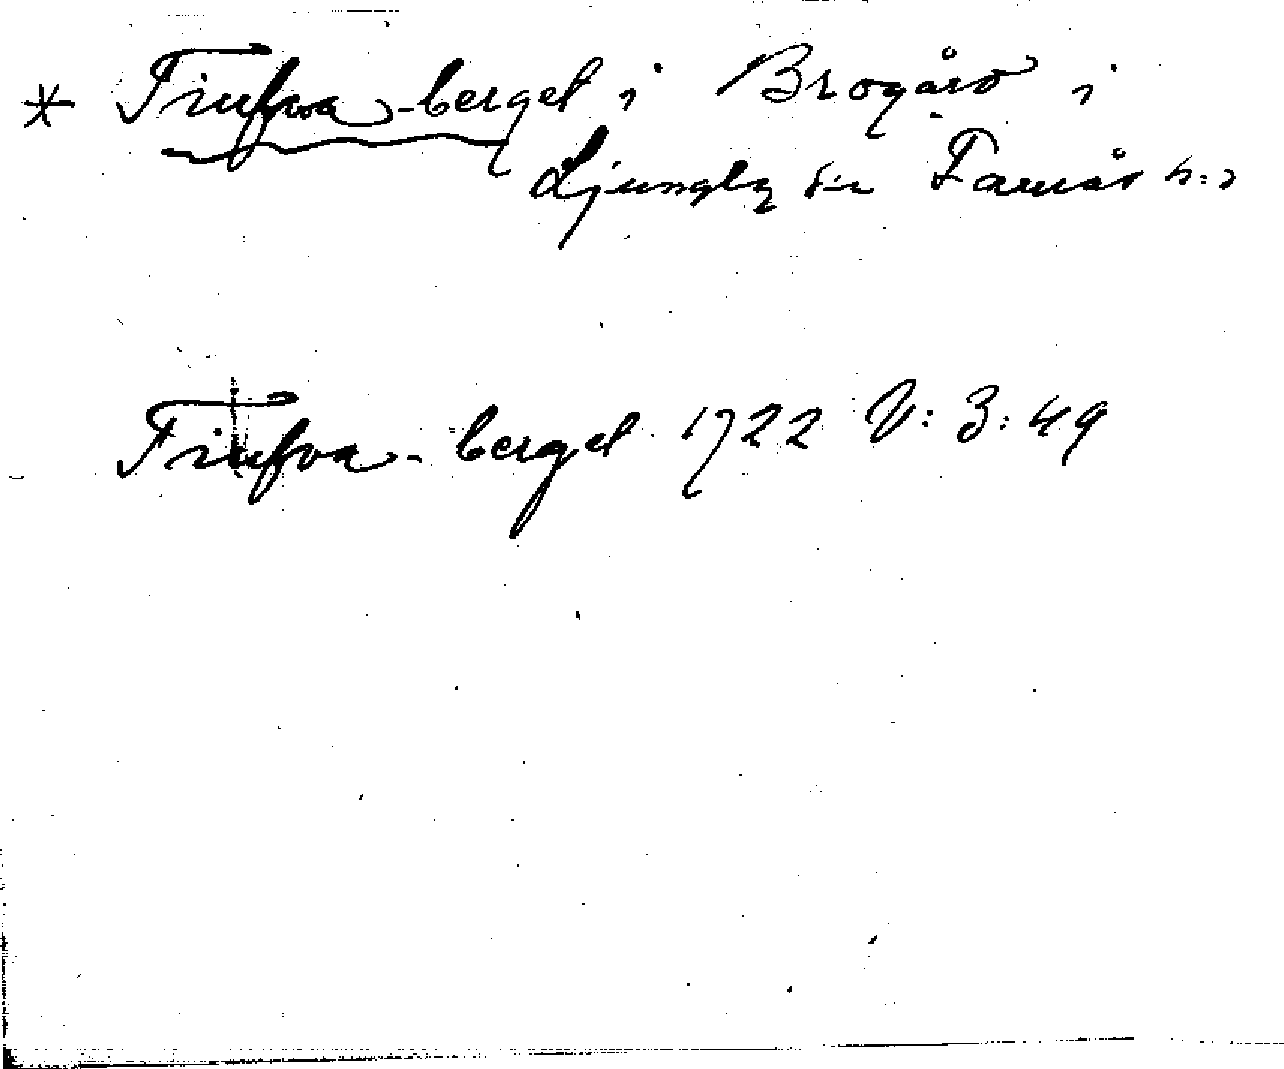 * Tiufva-berget i Brogård i
Ljungby s:n Faurås h:d
Tiufva-berget 1722 V:3:49